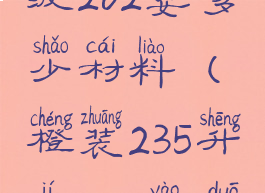 级202要多
shǎo cái liào
少材料(
chéng zhuāng shēng
橙装235升
jí yào duō